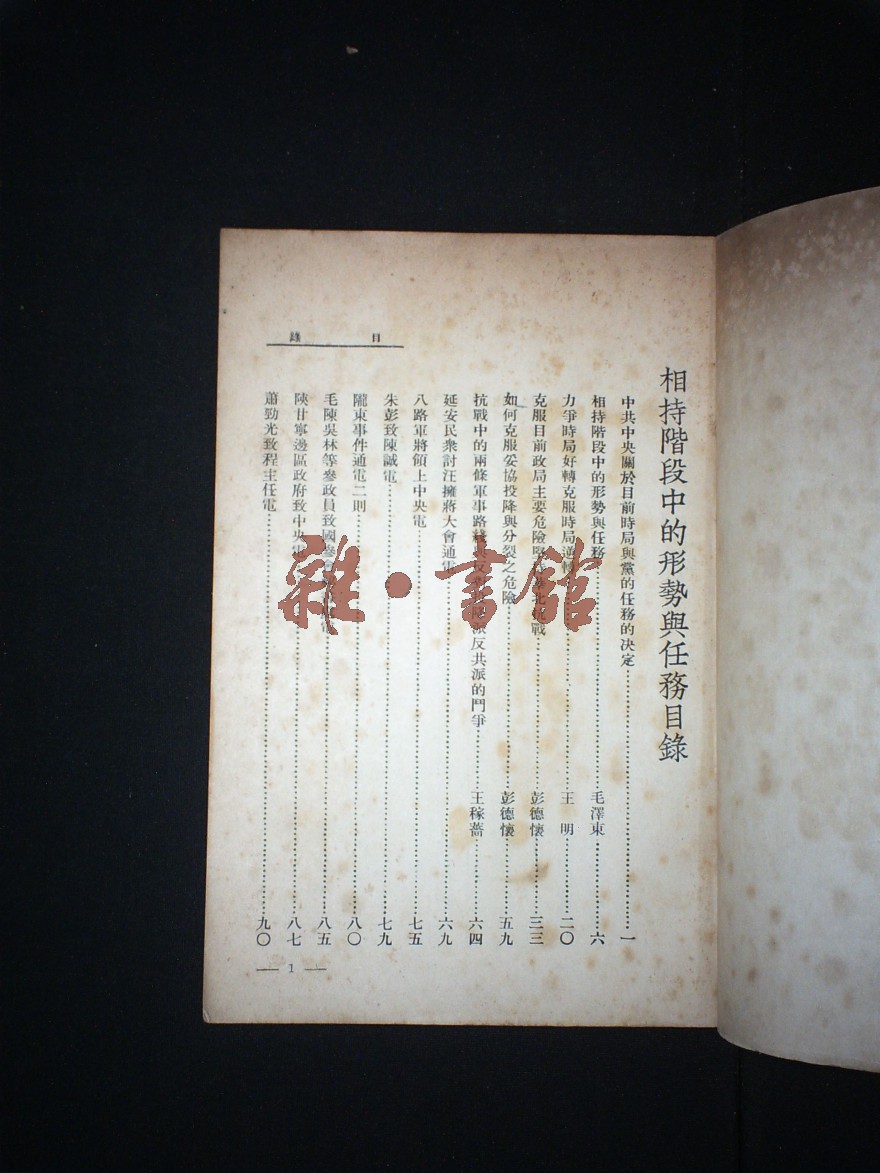 相持階段中的形勢與任務目錄
中共中央關於目前時局與黨的任務的決定…………一
相持階段中的形勢與任務…………毛澤東…………六
力爭時局好轉克服時局逆轉…………王　明…………二〇
克服目前政局主要危險堅持華北抗戰…………彭德懷…………三三
如何克服妥協投降與分裂之危險…………彭德懷…………五九
抗戰中的兩條軍事路綫與反 反共派的鬥爭…………王稼薔…………六四
延安民衆討汪擁蔣大會通電…………六九
八路軍將領上中央電…………七五
朱彭致陳誠電…………七九
隴東事件通電二則…………八〇
毛陳吳林等參政員致國參會 電…………八五
陝甘寧邊區政府致中央電…………八七
蕭勁光致程主任電…………九〇
目錄
— 1 —
雜·書館